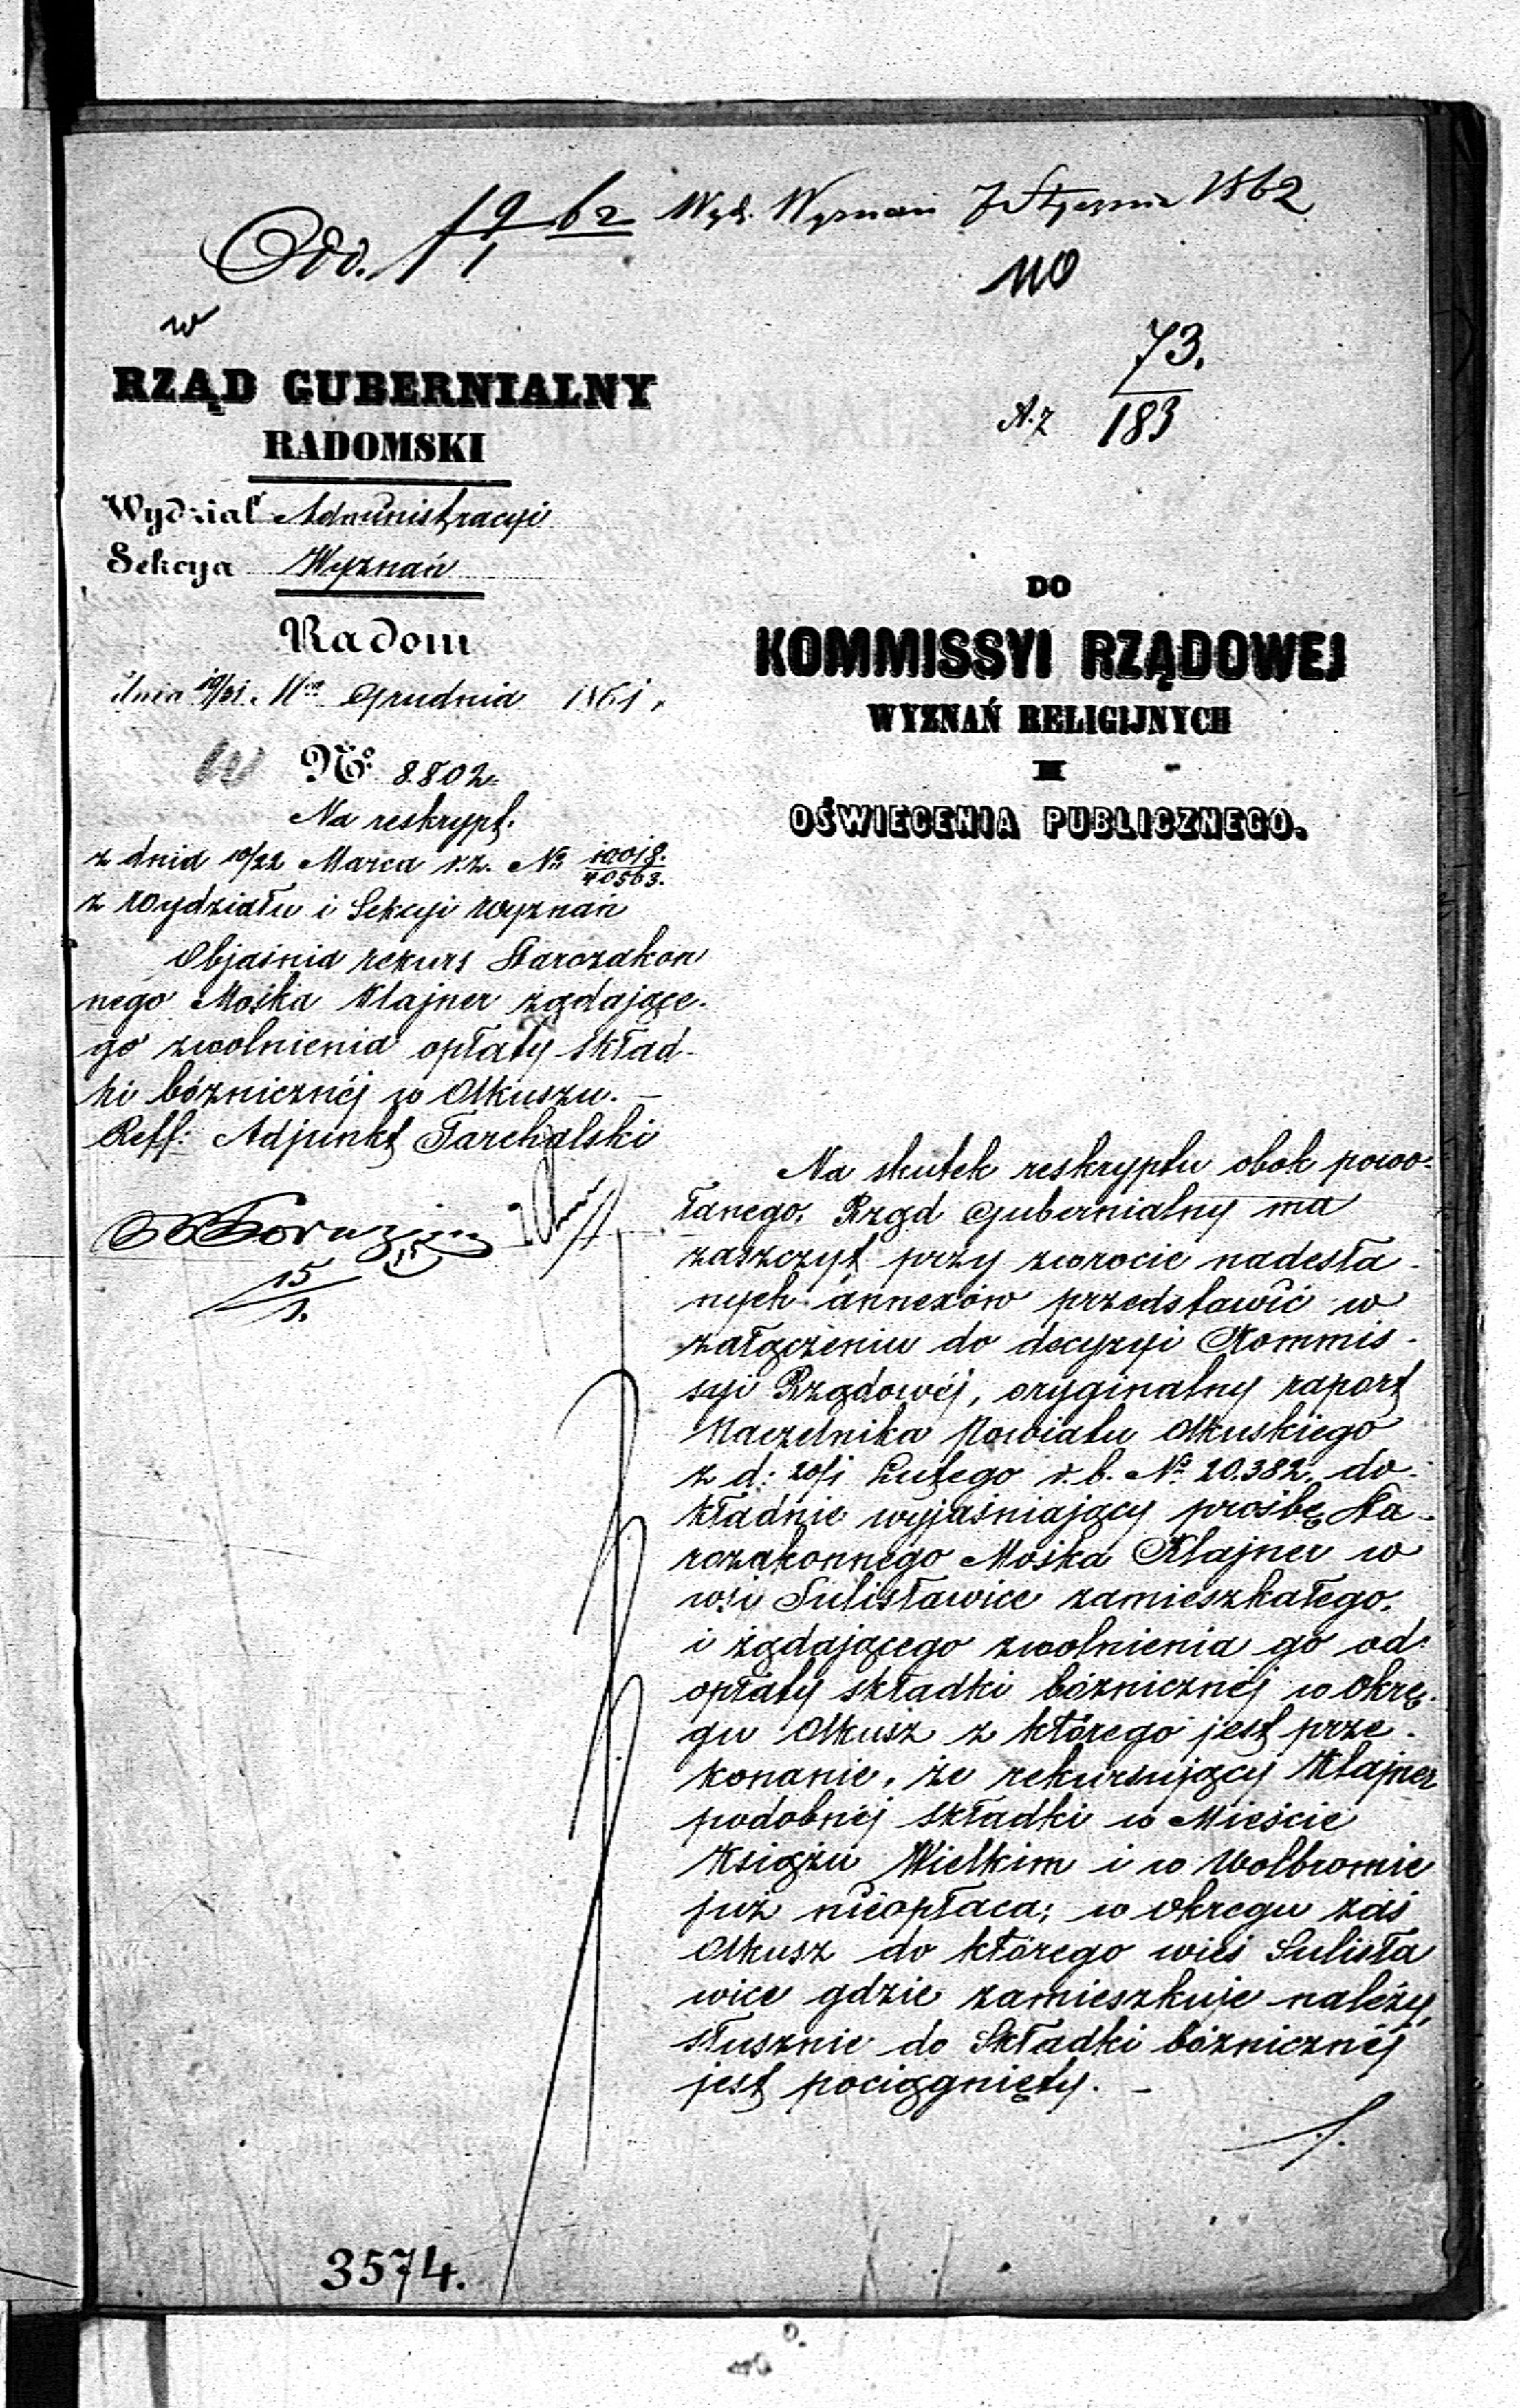 Odd. 19/1 62 Wyd. Wyznań 7 Stycznia 1862
110
73.
183
w
RZĄD GUBERNIALNY
RADOMSKI
Wydział Administracyi
Sekcya Wyznań
Radom
dnia 19/31 Mca Grudnia 1861 r.
No. 8.802
Na reskrypt.
z dnia 10/22 Marca r.z. No 10018./40563.
z Wydziału i Sekcyi Wyznań
Objaśnia rekurs Starozakon
nego Mośka Klajner żądające-
go zwolnienia opłaty skład-
ki bóżnicznéj w Olkuszu. —
Reff: Adjunkt Tarchalski
15/1.
DO
KOMMISSYI RZĄDOWEJ
WYZNAŃ RELIGIJNYCH
I
OŚWIECENIA PUBLICZNEGO.
Na skutek reskryptu obok powo-
łanego, Rząd Gubernialny ma
zaszczyt przy zwrocie nadesła-
nych annexów przedstawić w
załączeniu do decyzyi Kommis-
syi Rządowéj, oryginalny raport
Naczelnika Powiatu Olkuskiego
z d: Lutego r.b. No 20.382. do-
kładnie wyjaśniający prośbę Sta-
rozakonnego Mośka Klajner w
wsi Sulisławice zamieszkałego,
i żądającego zwolnienia go od
opłaty składki bóżnicznéj w Okrę-
gu Olkusz z którego jest prze-
konanie, że rekursujący Klajner
podobnéj składki w Mieście
Książu Wielkim i w Wolbromie
już nieopłaca; w okręgu zaś
Olkusz do którego wieś Sulisła
wice gdzie zamieszkuje należy,
słusznie do Składki bóżnicznéj
jest pociągnięty. —
3574.